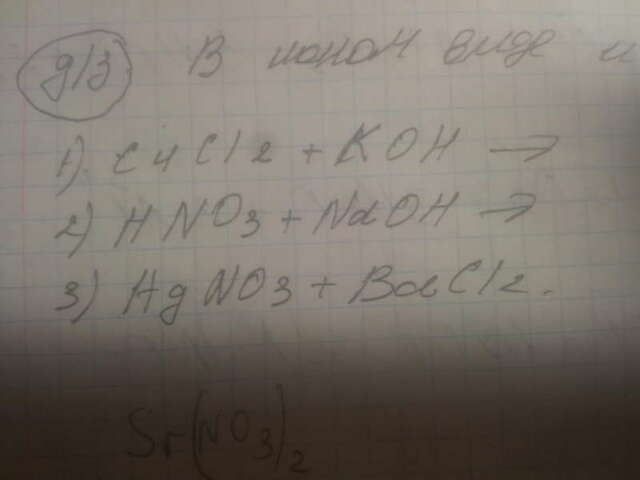 д/з В ионом виде и
1). CuCl2 + KOH →
2) HNO3 + NaOH →
3) AgNO3 + BaCl2.
Sr(NO3)2